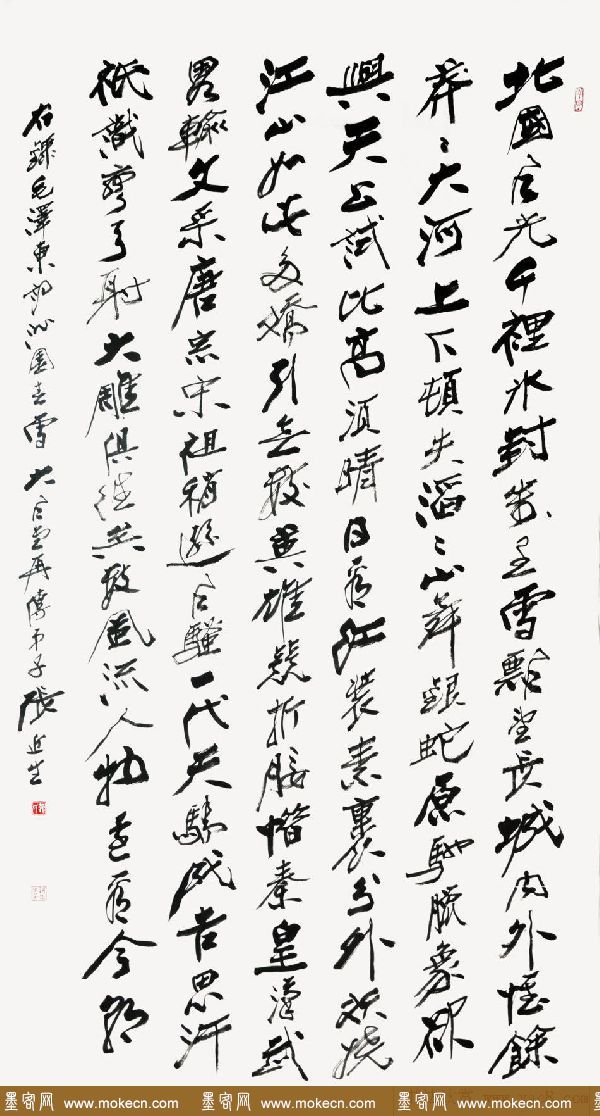 北國風光千裡冰封萬里雪飄望長城內外惟餘
莽〻大河上下頓失滔〻山舞銀蛇原馳臘象欲
與天公試比高須晴日看紅裝素裹分外妖嬈
江山如此多嬌引無數英雄競折腰惜秦皇漢武
略輸文采唐宗宋祖稍遜風騷一代天驕成吉思汗
祇識彎弓射大雕俱往矣數風流人物還看今朝
右錄毛澤東詞沁園春雪 大風堂再傳弟子張近生
墨客网 www.mokecn.com 墨客网 www.mokecn.com 墨客网 www.mokecn.com